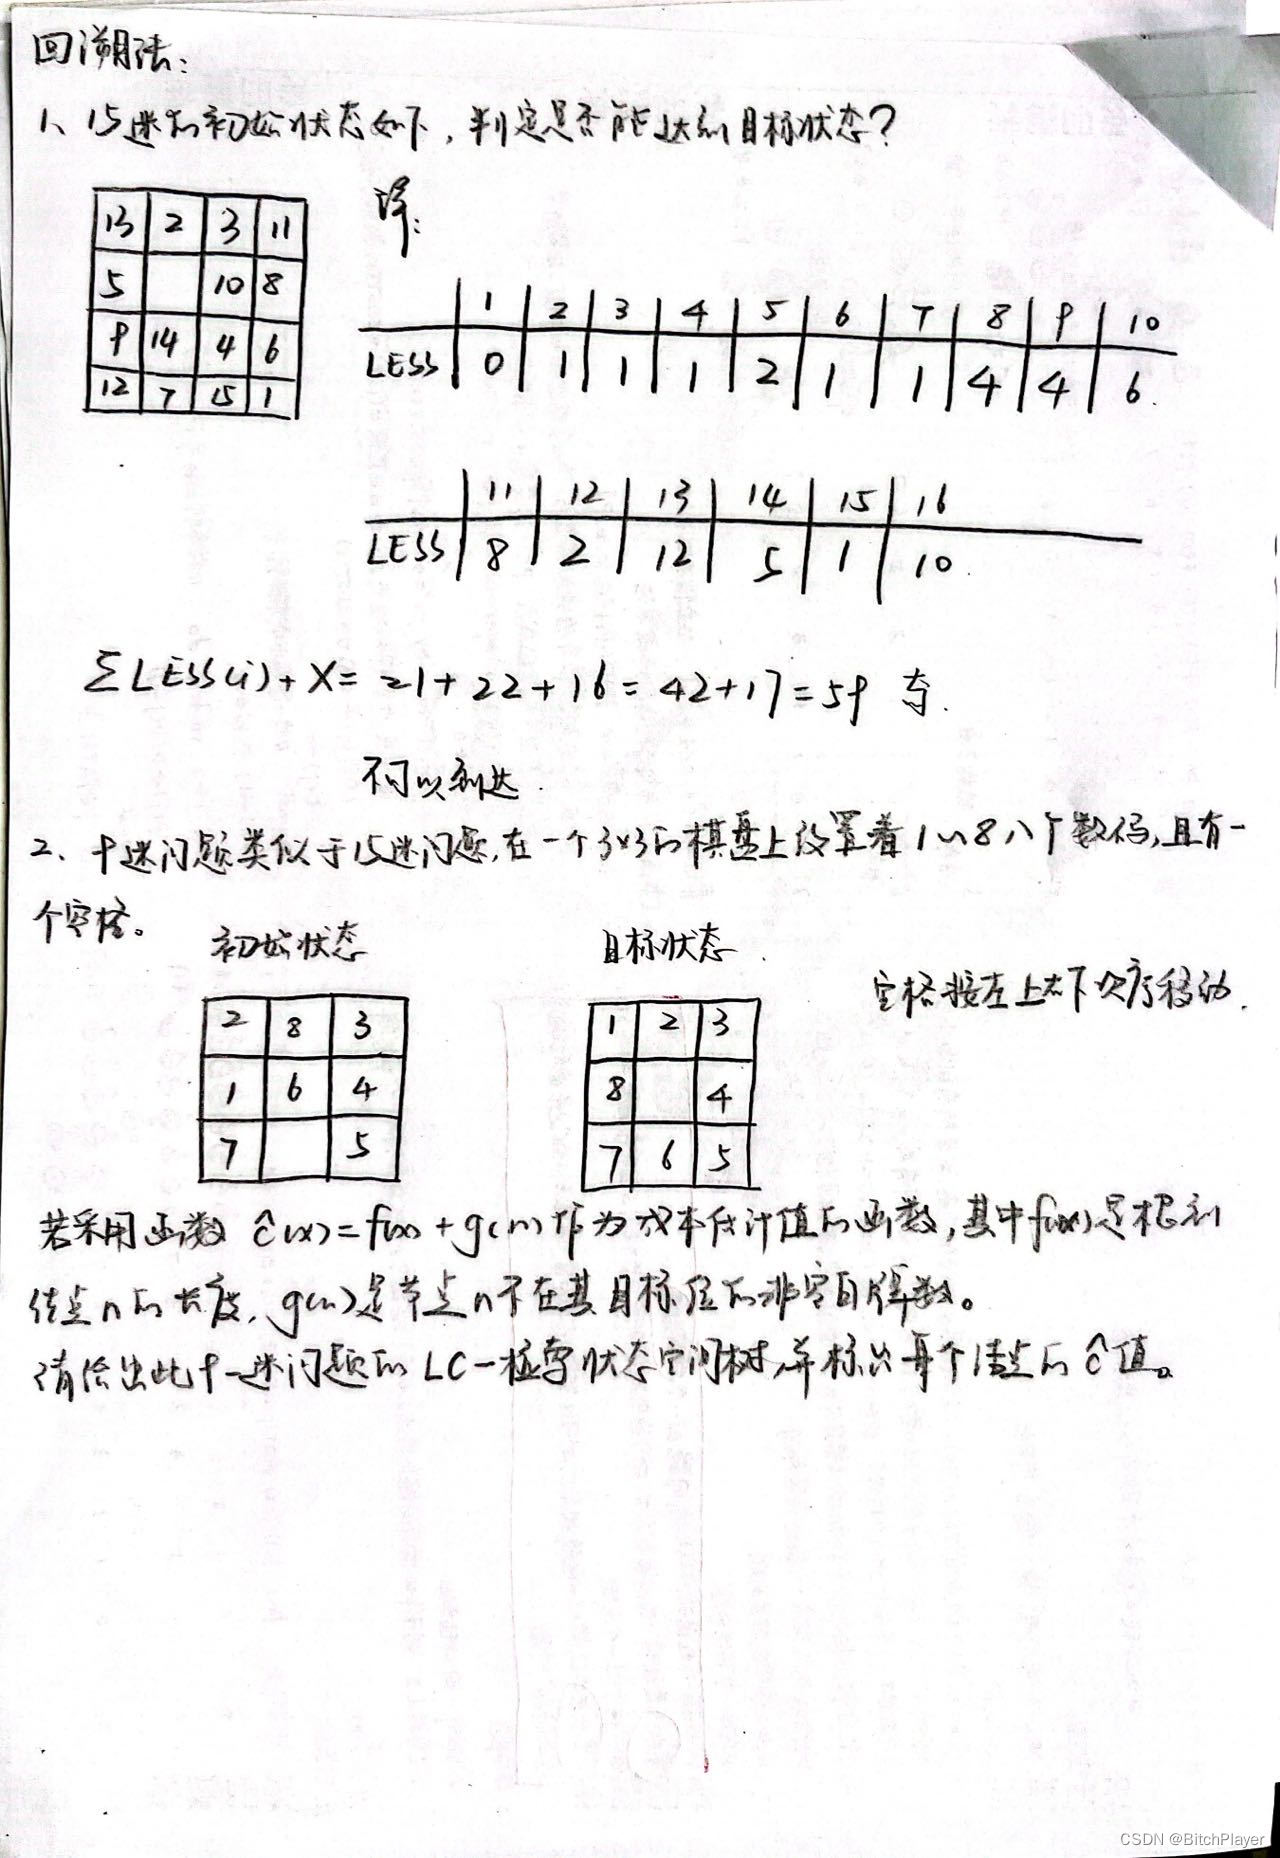 回溯法:
1、15迷的初始状态如下,判定是否能达到目标状态?
13 2 3 11
5 10 8
9 14 4 6
12 7 15 1
解:
1 2 3 4 5 6 7 8 9 10
LESS 0 1 1 1 2 1 1 4 4 6
11 12 13 14 15 16
LESS 8 2 12 5 1 10
ΣLESS(i)+X=21+22+16=42+17=59 奇.
不可以到达.
2、九迷问题类似于15迷问题,在一个3x3的棋盘上设置着1~8八个数码,且有一
个空格。
初始状态
目标状态
空格按左上右下次序移动.
2 8 3
1 6 4
7 5
1 2 3
8 4
7 6 5
若采用函数 ĉ(x)=f(x)+g(n)作为成本估计值的函数,其中f(x)是根到
结点n的长度,g(n)是节点n不在其目标位的非空白牌数。
请绘出此九迷问题的LC-检索状态空间树,并标出每个结点的ĉ值。
CSDN @BitchPlayer